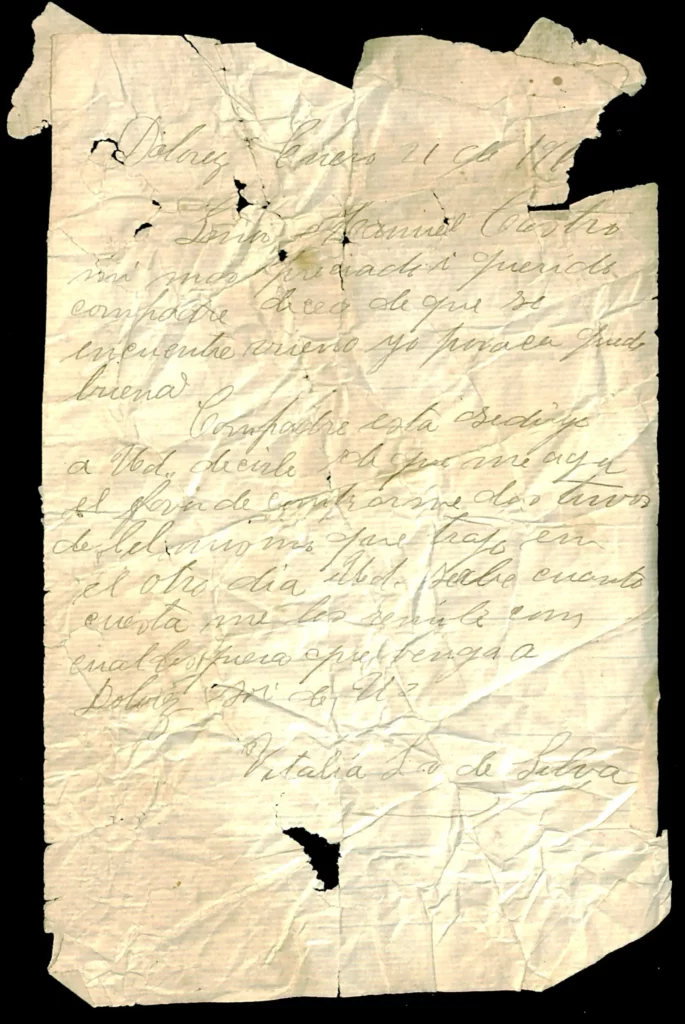 Dolorez Enero 21 de 19
Señor Manuel Castro
mi mas preciado i querido
compadre deceo de que se
encuentre vueno yo poraca quedo
buena
Compadre esta se dirije
a Ud., decirle de que me aga
el favor de comprarme dos tivos
de lel mismo que trajo en
el otro dia Ud. sabe cuanto
cuesta me los remite con
cualesquiera que venga a
Dolorez Soi de Ud
Vitalia L v de Silva